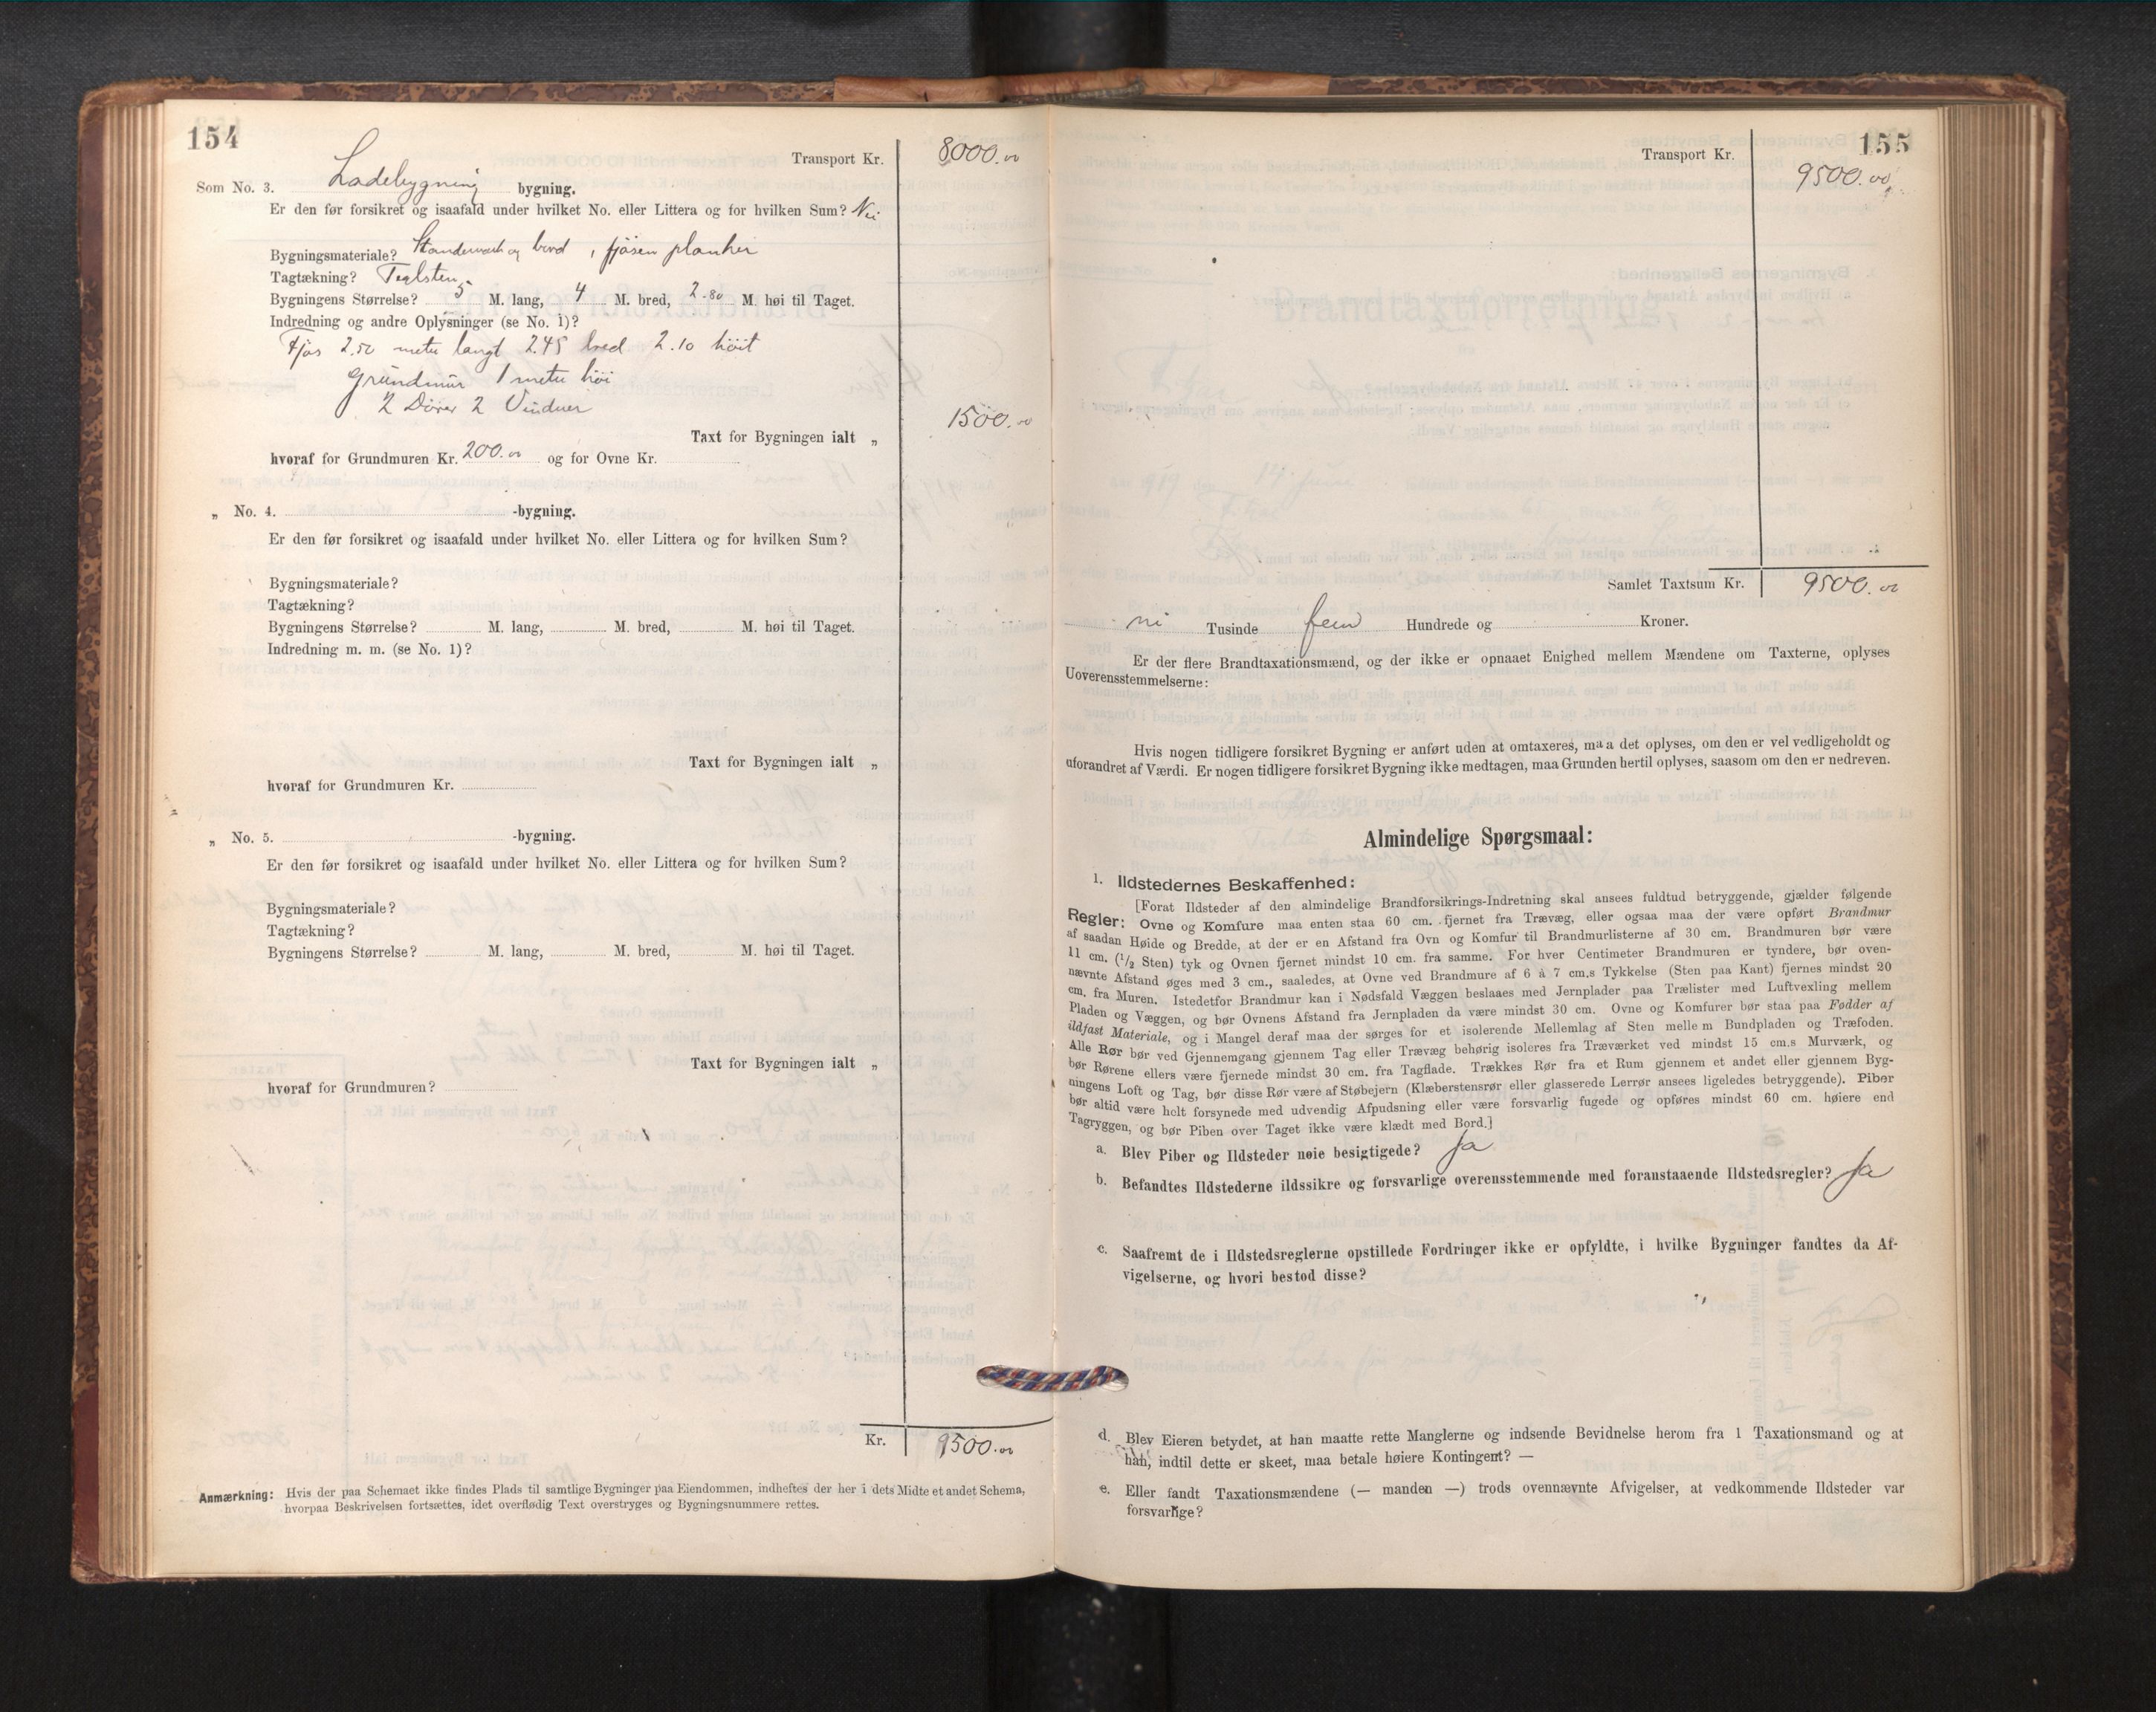 154
Transport Kr. 8000.00
Som No. 3. Ladebygning bygning.
Er den før forsikret og isaafald under hvilket No. eller Littera og for hvilken Sum? Nei
Bygningsmateriale? Standerverk og bord , fjøsen planker
Tagtækning? Teglsten
Bygningens Størrelse? 5 M. lang, 4 M. bred, 2.80 M. høi til Taget.
Indredning og andre Oplysninger (se No. 1)?
Fjøs 2.50 meter langt 2.45 bred 2.10 höit
Grundmür 1 meter höi
2 Dörer 2 Vinduer
1500.00
Taxt for Bygningen ialt „
hvoraf for Grundmuren Kr. 200.00 og for Ovne Kr.
„ No. 4. -bygning.
Er den før forsikret og isaafald under hvilket No. eller Littera og for hvilken Sum?
Bygningsmateriale?
Tagtækning?
Bygningens Størrelse? M. lang, M. bred, M. høi til Taget.
Indredning m. m. (se No. 1)?
Taxt for Bygningen ialt „
hvoraf for Grundmuren Kr.
„ No. 5. -bygning.
Er den før forsikret og isaafald under hvilket No. eller Littera og for hvilken Sum?
Bygningsmateriale?
Tagtækning?
Bygningens Størrelse? M. lang, M. bred, M. høi til Taget.
Taxt for Bygningen ialt „
hvoraf for Grundmuren?
Kr. 9500.00
Anmærkning: Hvis der paa Schemaet ikke findes Plads til samtlige Bygninger paa Eiendommen, indheftes der her i dets Midte et andet Schema,
hvorpaa Beskrivelsen fortsættes, idet overflødig Text overstryges og Bygningsnummere rettes.
155
Transport Kr.
9500.00
Samlet Taxtsum Kr. 9500.00
ni Tusinde fem Hundrede og Kroner.
Er der flere Brandtaxationsmænd, og der ikke er opnaaet Enighed mellem Mændene om Taxterne, oplyses
Uoverensstemmelserne:
Hvis nogen tidligere forsikret Bygning er anført uden at omtaxeres, maa det oplyses, om den er vel vedligeholdt og
uforandret af Værdi. Er nogen tidligere forsikret Bygning ikke medtagen, maa Grunden hertil oplyses, saasom om den er nedreven.
Almindelige Spørgsmaal:
1. Ildstedernes Beskaffenhed:
[Forat Ildsteder af den almindelige Brandforsikrings-Indretning skal ansees fuldtud betryggende, gjælder følgende
Regler: Ovne og Komfure maa enten staa 60 cm. fjernet fra Trævæg, eller ogsaa maa der være opført Brandmur
af saadan Høide og Bredde, at der er en Afstand fra Ovn og Komfur til Brandmurlisterne af 30 cm. Brandmuren bør være
11 cm. (1/2 Sten) tyk og Ovnen fjernet mindst 10 cm. fra samme. For hver Centimeter Brandmuren er tyndere, bør oven-
nævnte Afstand øges med 3 cm., saaledes, at Ovne ved Brandmure af 6 à 7 cm.s Tykkelse (Sten paa Kant) fjernes mindst 20
cm. fra Muren. Istedetfor Brandmur kan i Nødsfald Væggen beslaaes med Jernplader paa Trælister med Luftvexling mellem
Pladen og Væggen, og bør Ovnens Afstand fra Jernpladen da være mindst 30 cm. Ovne og Komfurer bør staa paa Fødder af
ildfast Materiale, og i Mangel deraf maa der sørges for et isolerende Mellemlag af Sten mellem Bundpladen og Træfoden.
Alle Rør bør ved Gjennemgang gjennem Tag eller Trævæg behørig isoleres fra Træværket ved mindst 15 cm.s Murværk, og
bør Rørene ellers være fjernede mindst 30 cm. fra Tagflade. Trækkes Rør fra et Rum gjennem et andet eller gjennem Byg-
ningens Loft og Tag, bør disse Rør være af Støbejern (Klæberstensrør eller glasserede Lerrør ansees ligeledes betryggende). Piber
bør altid være helt forsynede med udvendig Afpudsning eller være forsvarlig fugede og opføres mindst 60 cm. høiere end
Tagryggen, og bør Piben over Taget ikke være klædt med Bord.]
a. Blev Piber og Ildsteder nøie besigtigede? Ja
b. Befandtes Ildstederne ildssikre og forsvarlige overensstemmende med foranstaaende Ildstedsregler? Ja
c. Saafremt de i Ildstedsreglerne opstillede Fordringer ikke er opfyldte, i hvilke Bygninger fandtes da Af-
vigelserne, og hvori bestod disse?
d. Blev Eieren betydet, at han maatte rette Manglerne og indsende Bevidnelse herom fra 1 Taxationsmand og at
han, indtil dette er skeet, maa betale høiere Kontingent? —
e. Eller fandt Taxationsmændene (— manden —) trods ovennævnte Afvigelser, at vedkommende Ildsteder var
forsvarlige?